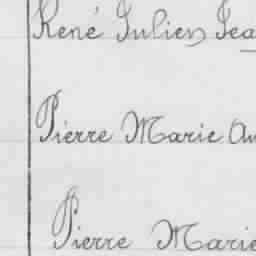 René Julien Jea
Pierre Marie Au
Pierre Marie